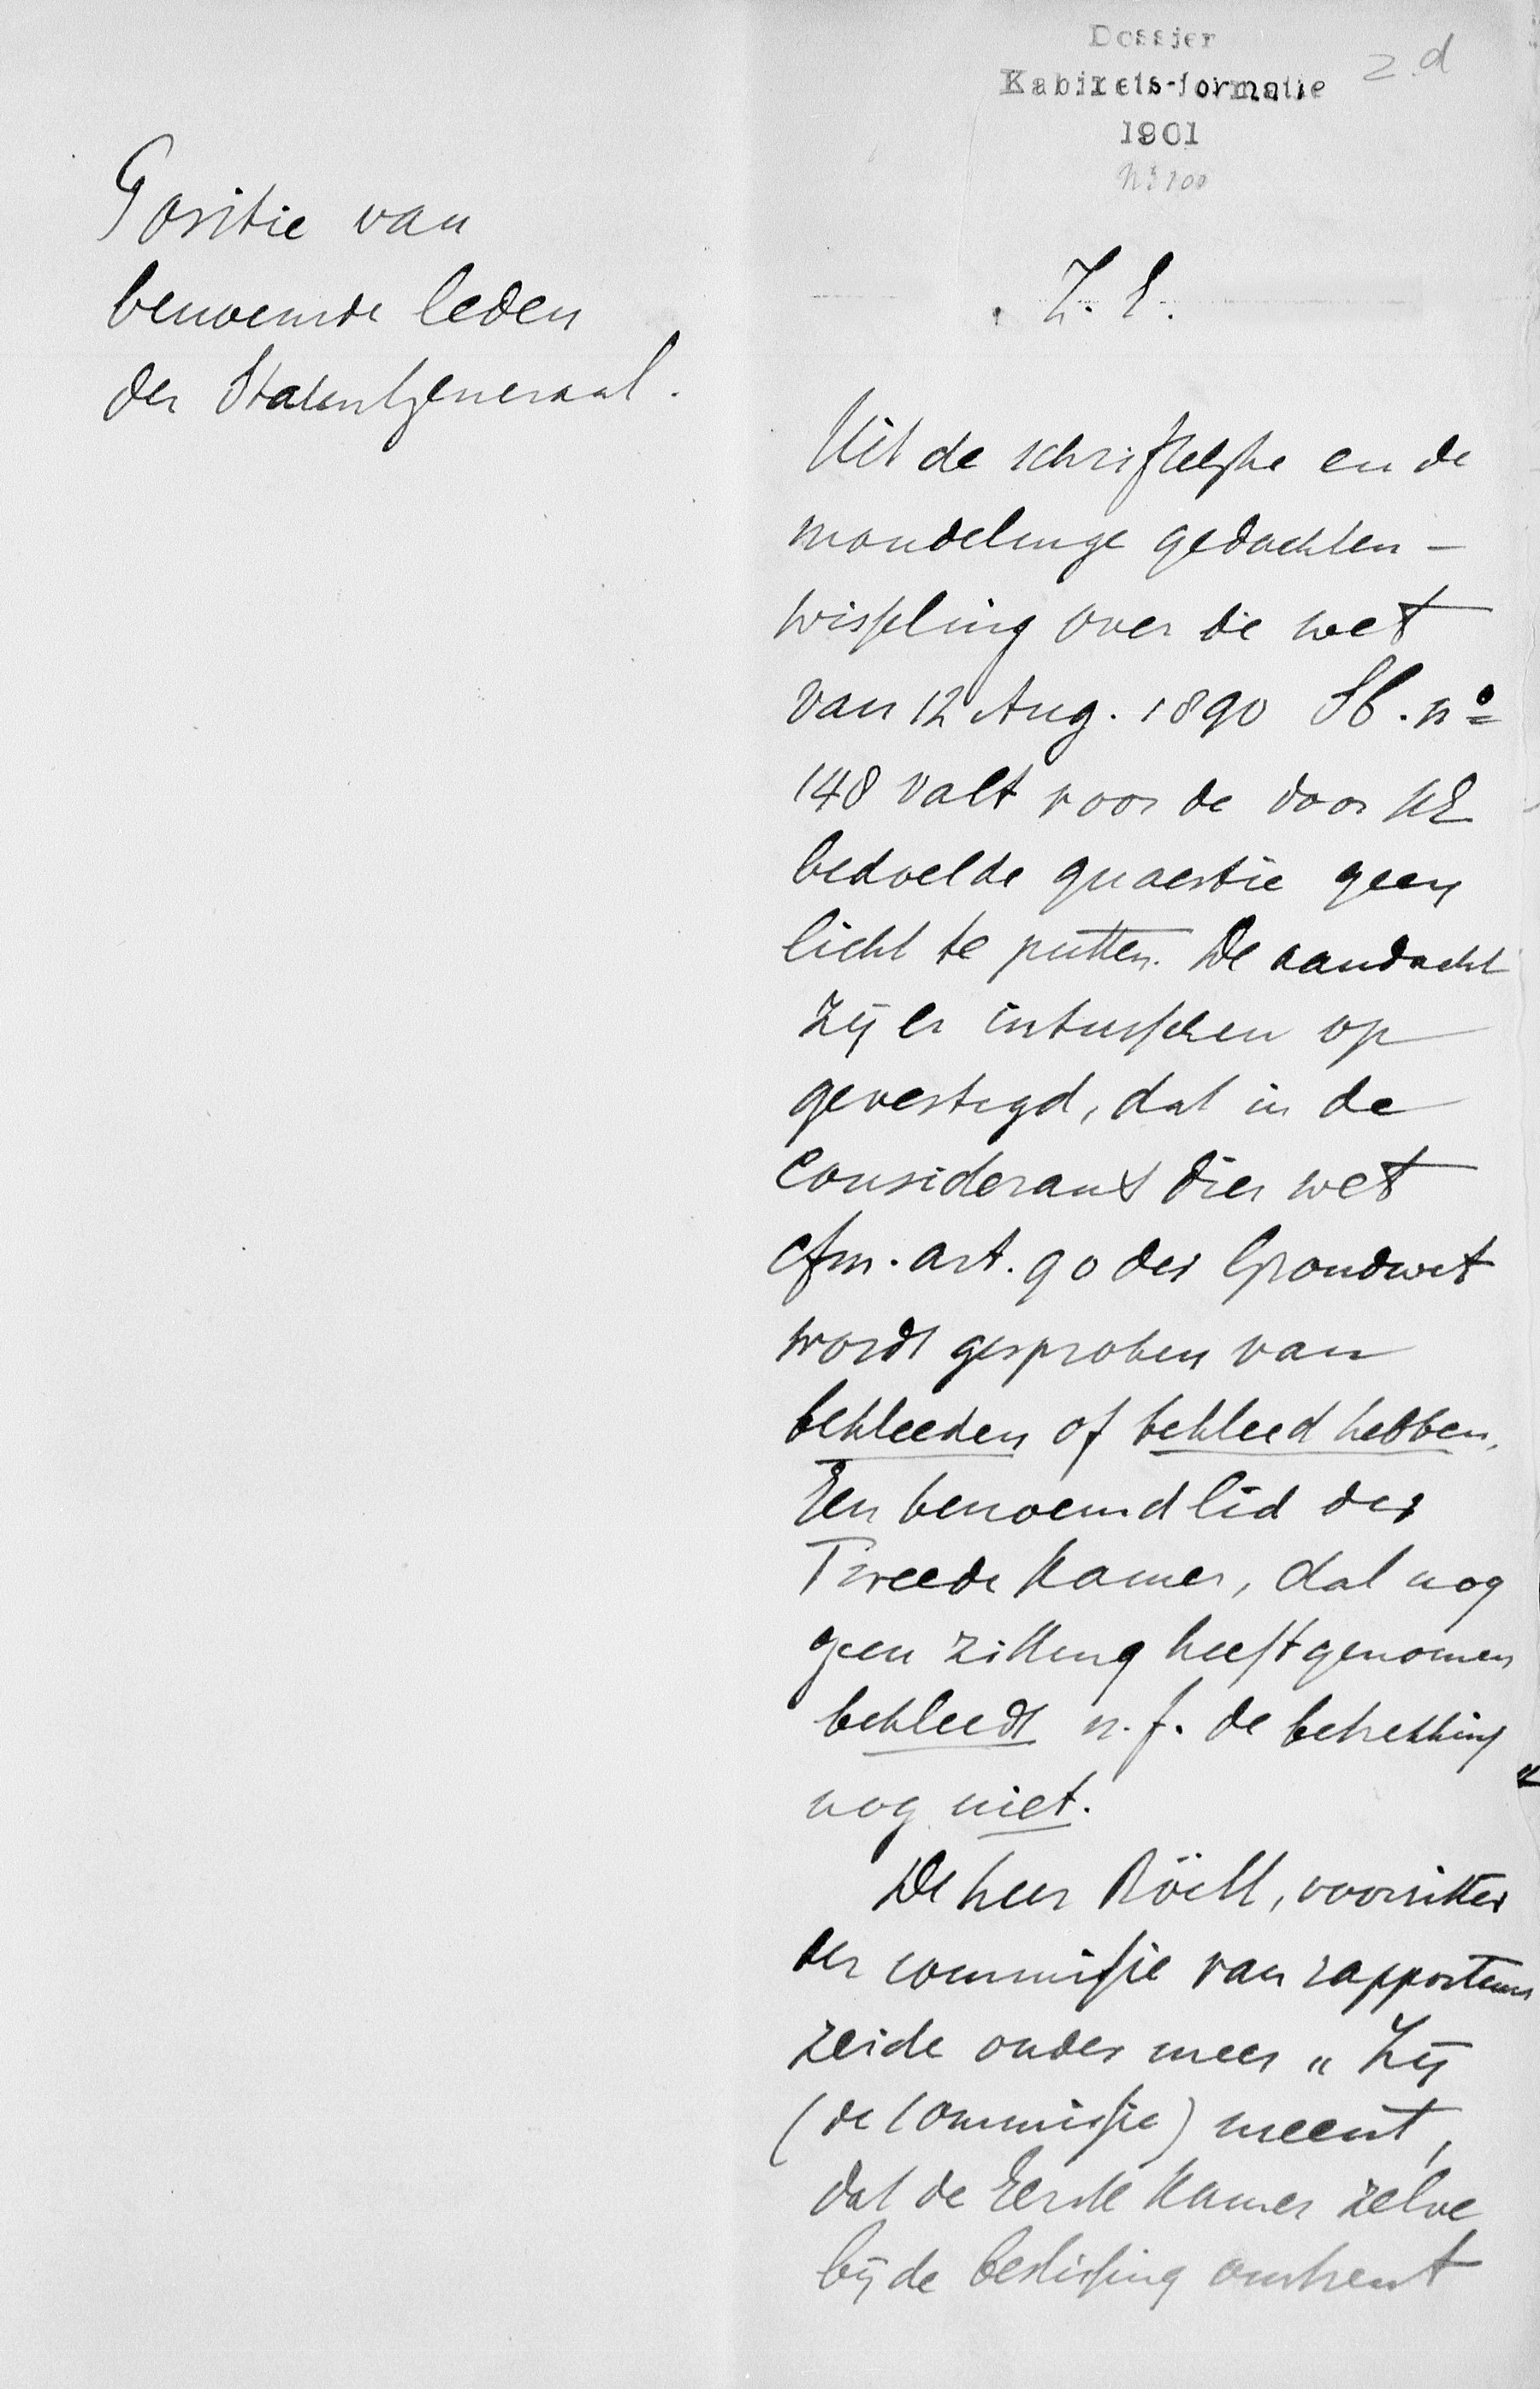 Dossier
Kabinets-formatie
1901
z.d
Positie van
benoemde leden
der Staten Generaal.
Z. E.
Uit de schriftelijke en de
mondelinge gedachten-
wisseling over de wet
van 12 Aug. 1890 Sb. nº
148 valt voor de door UE
bedoelde quaestie geen
licht te putten. De aandacht
zij er intusschen op
gevestigd, dat in de
Considerans dier wet
cfm. art. 90 der Grondwet
wordt gesproken van
bekleeden of bekleed hebben.
Een benoemd lid der
Tweede Kamer, dat nog
geen zitting heeft genomen
bekleedt n.f. de betrekking
nog niet.
De heer Röell, voorzitter
der commissie van rapporteurs
zeide onder meer „Zij
(de Commissie) meent,
dat de Eerste Kamer zelve
bij de beslissing omtrent